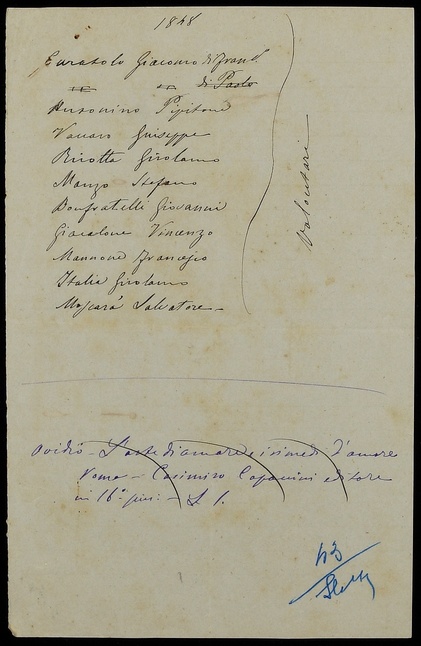 1848
Curatolo Giacomo di Franc.
di Paolo
Pipitone
Vaccaro Giuseppe
Girolamo
Manzo Stefano
Bonfratelli Giovanni
Giacalone Vincenzo
Mannone Francesco
Italia Girolamo
Salvatore
Volontari
Ovidio - L'arte di amare e i rimedi d'amore
Roma - Casimiro editore
in 16° - L 1.
43